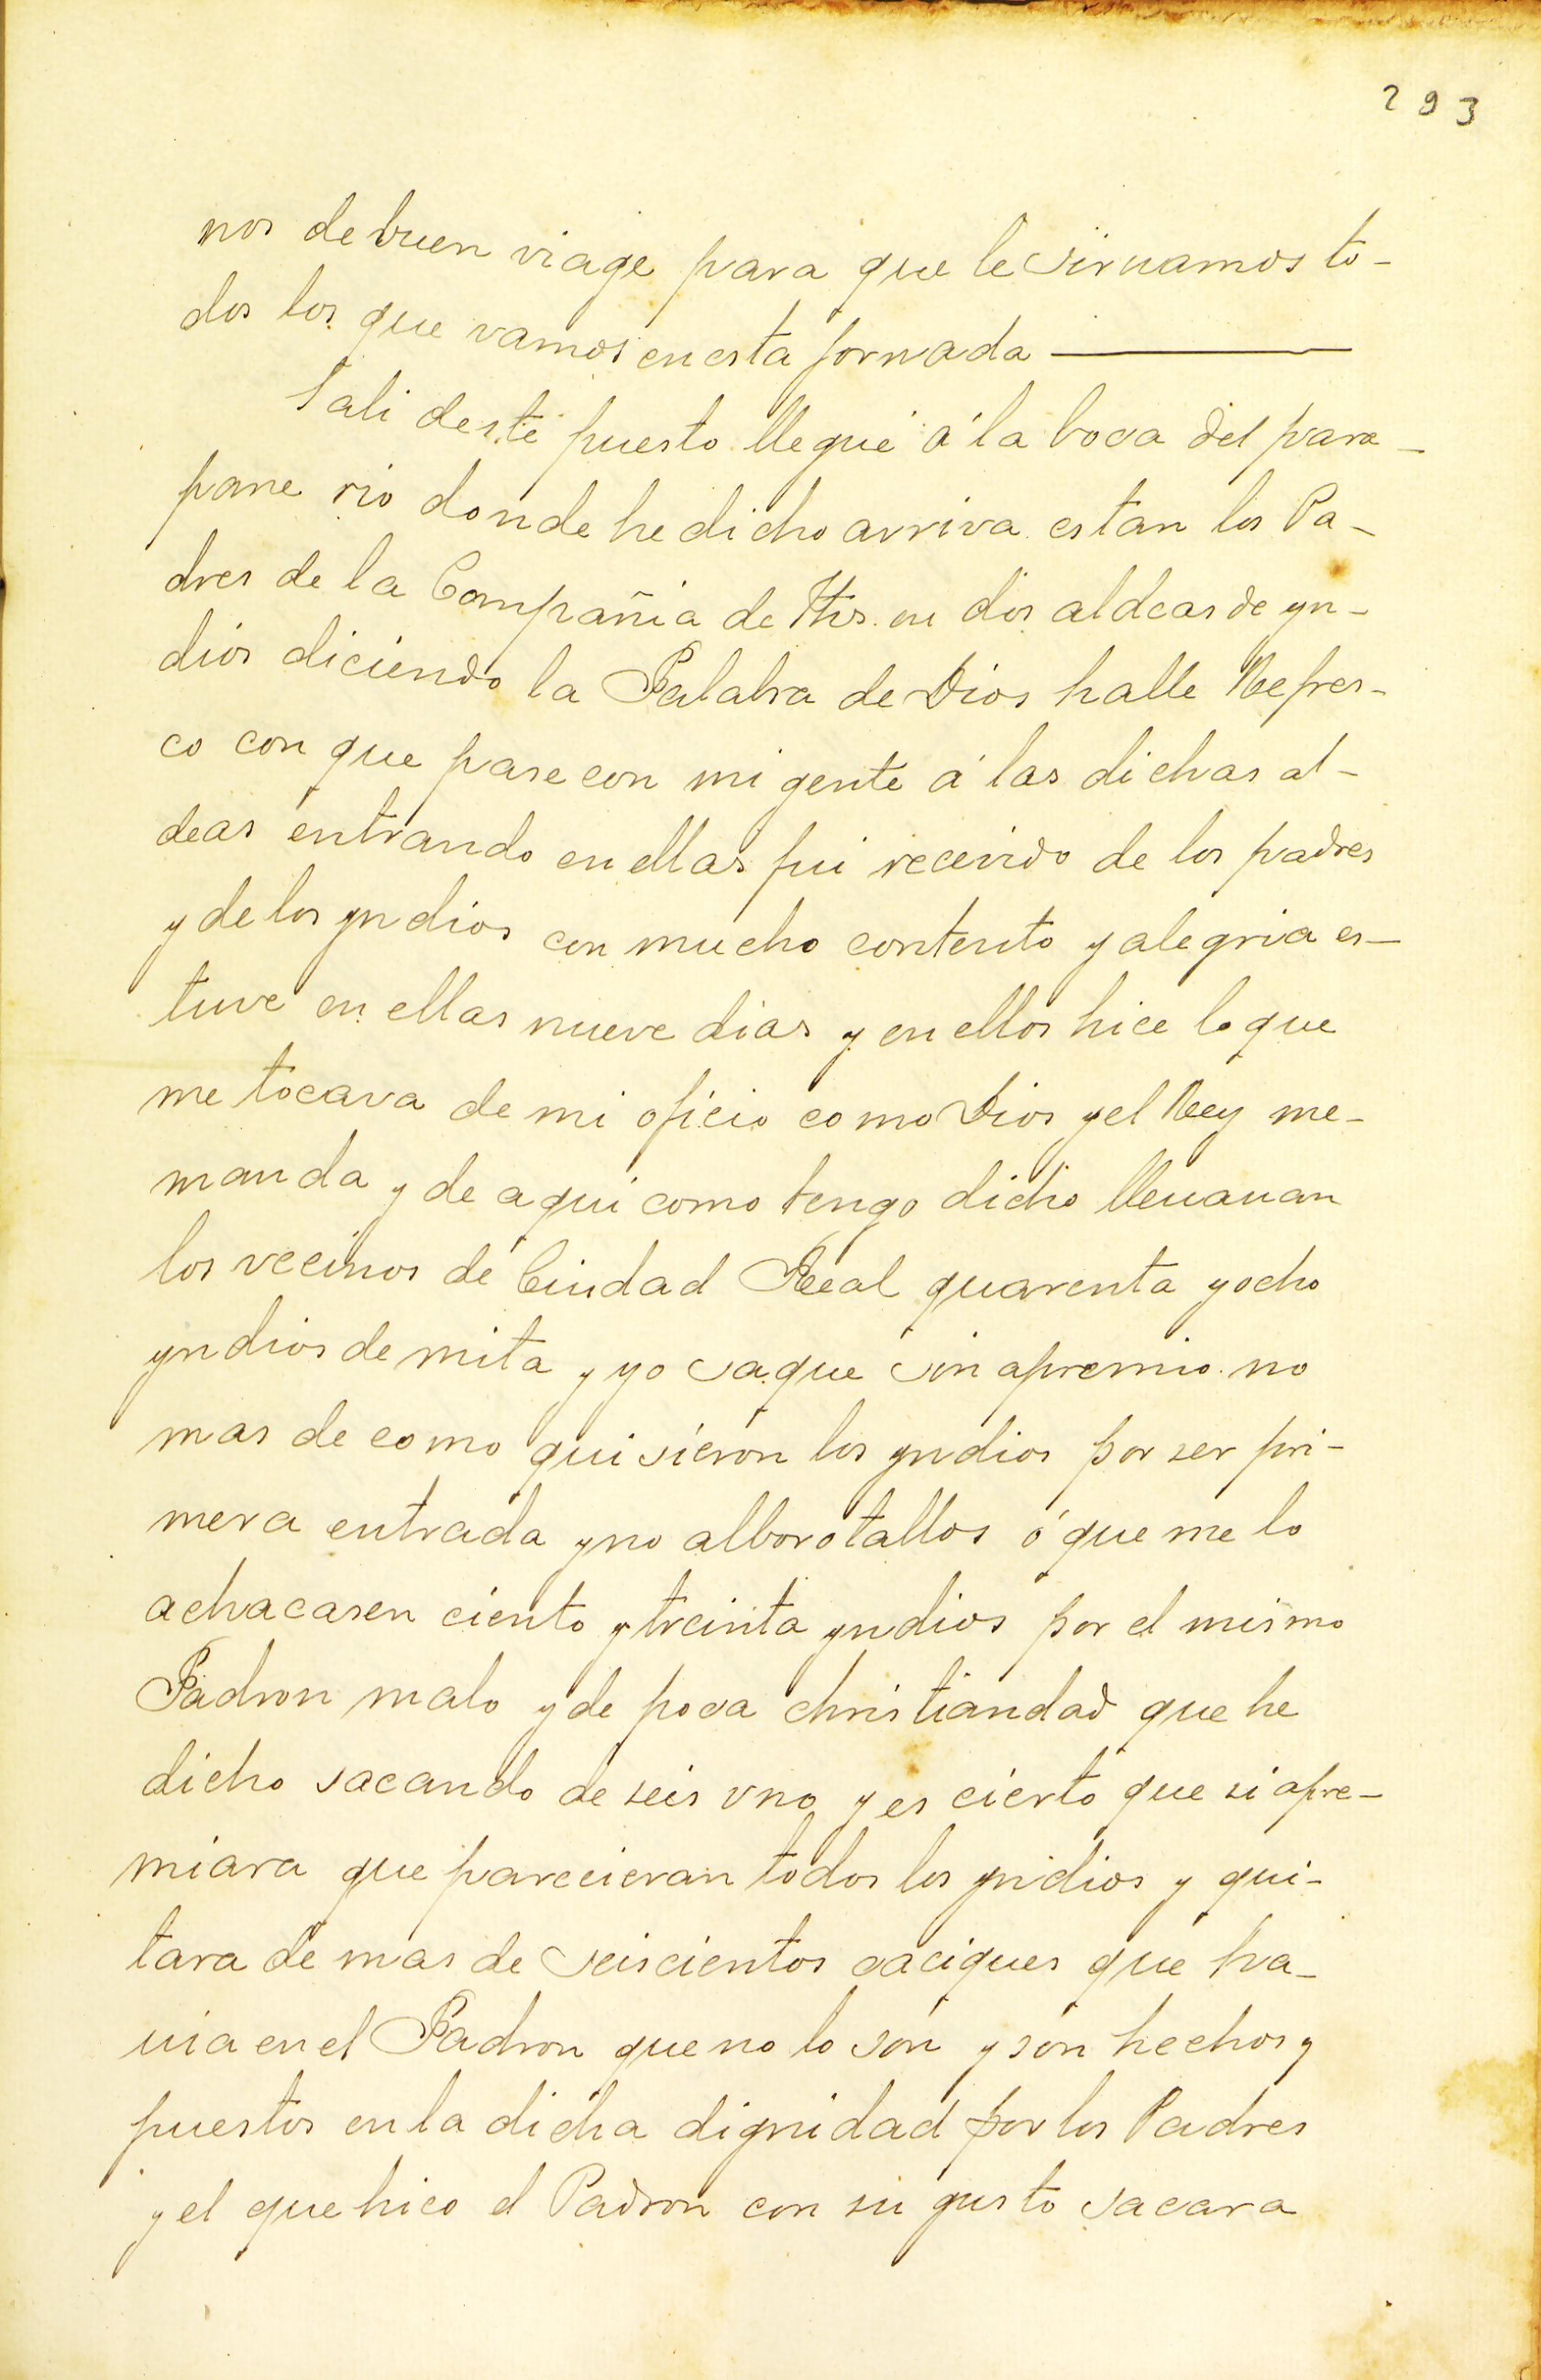 293
nos de buen viage para que le siruamos to-
dos los que vamos en esta jornada —
Sali deste puesto llegué á la boca del para-
pane rio donde he dicho arriva estan los Pa-
dres de la Compañia de Jhs. en dos aldeas de yn-
dios diciendo la Palabra de Dios halle Refres-
co con que pase con mi gente á las dichas al-
deas entrando en ellas fui recevido de los padres
y de los yndios con mucho contento y alegria es-
tuve en ellas nueve dias y en ellos hice lo que
me tocava de mi oficio como Dios y el Rey me-
manda y de aqui como tengo dicho lleuauan
los vecinos de Ciudad Real quarenta y ocho
yndios de mita y yo saque sin apremio no
mas de como quisieron los yndios por ser pri-
mera entrada y no alborotallos ó que me lo
achacasen ciento y treinta yndios por el mismo
Padron malo y de poca christiandad que he
dicho sacando de seis vno y es cierto que si apre-
miara que parecieran todos los yndios y qui-
tara de mas de seiscientos caciques que ha-
uia en el Padron que no lo son y son hechos y
puestos en la dicha dignidad por los Padres
y el que hico el Padron con su gusto sacara